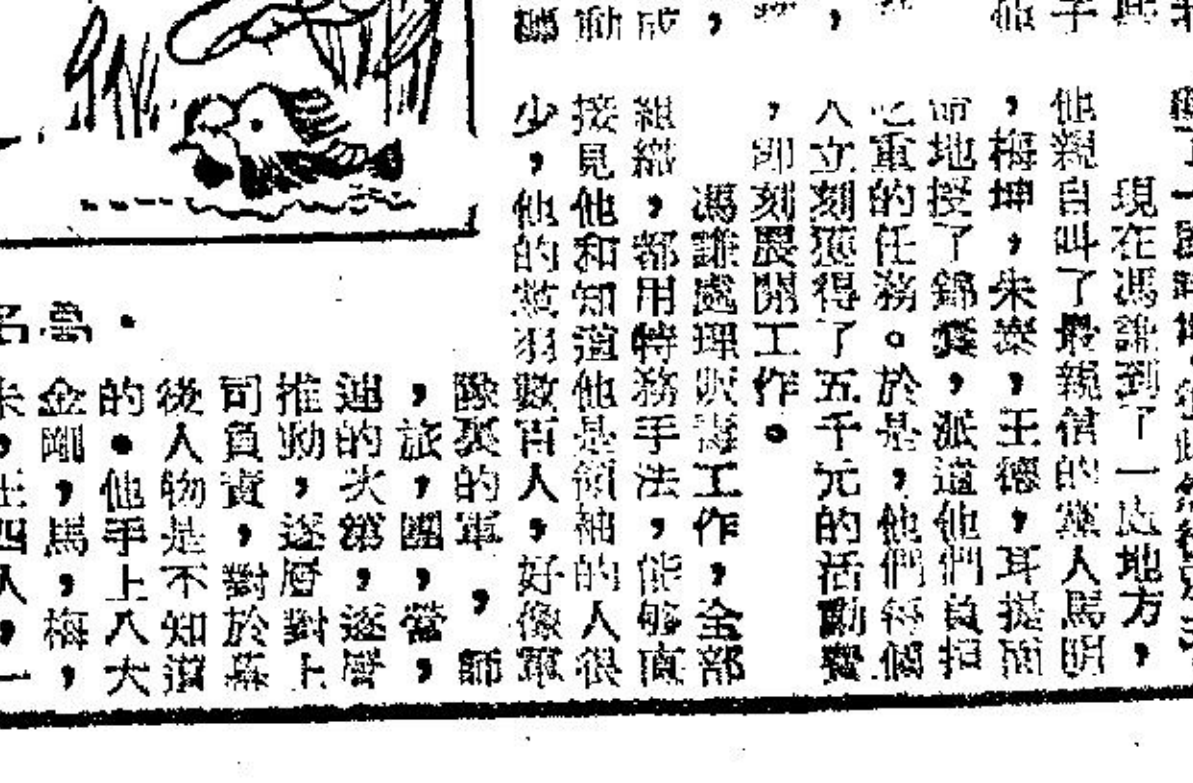 現在馮謙到了一處地方，
他親自叫了最親信的黨人馬明
，梅坤，朱崇，王德，耳提面
命地授了錦囊，派道他們負担
重的任務。於是，他們每個
人立刻獲得了五千元的活動費
，即刻展開工作。
馮謙處理販毒工作，全部
組織，都用特務手法，能够直
接見他和知道他是領袖的人很
少，他的黨羽數百人，好像軍
隊裏的軍，師
，旅，團，營，
連的次第，逐層
推動，逐層對上
司負責，對於幕
後人物是不知道
的。他手上八大
金剛，馬，梅，
四人，一